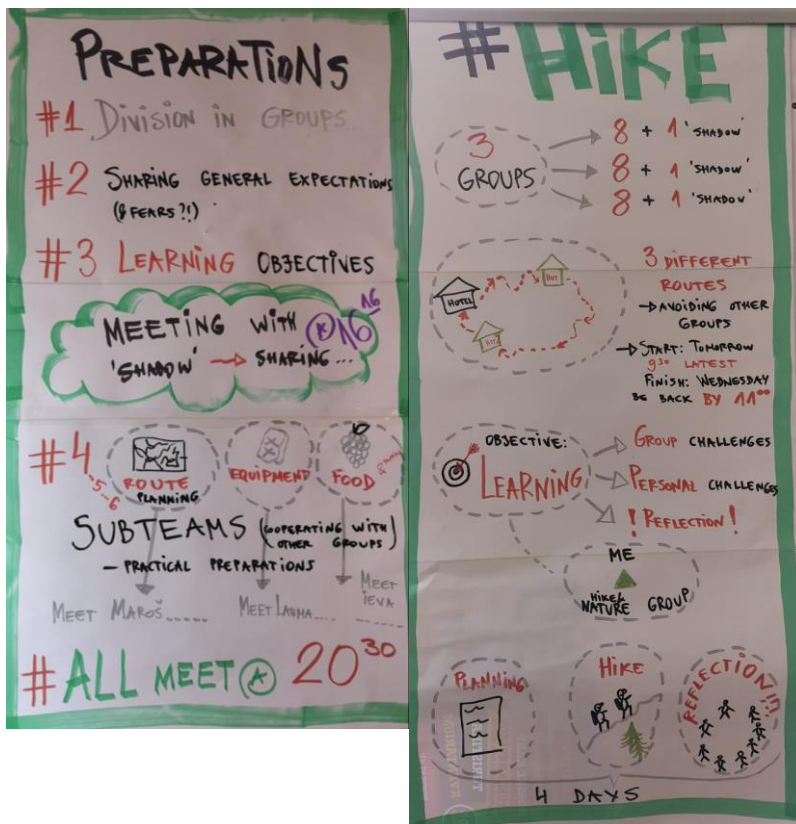 PREPARATIONS
#1 DIVISION IN GROUPS...
#2 SHARING GENERAL EXPECTATIONS
(& FEARS?!)
#3 LEARNING OBJECTIVES
MEETING WITH @ 16 16
'SHADOW' → SHARING...
#4
...5...6
ROUTE
PLANNING
EQUIPMENT
FOOD
SUBTEAMS (COOPERATING WITH
OTHER GROUPS)
– PRACTICAL PREPARATIONS
MEET MAROŠ.....
MEET LAUMA....
MEET
IEVA
#ALL MEET @ 20 30
#HIKE
3
GROUPS
8 + 1 'SHADOW'
8 + 1 'SHADOW'
8 + 1 'SHADOW'
HOTEL
HUT
HUT
3 DIFFERENT
ROUTES
→ AVOIDING OTHER
GROUPS
→ START: TOMORROW
9 30 LATEST
FINISH: WEDNESDAY
BE BACK BY 11 00
OBJECTIVE:
LEARNING
GROUP CHALLENGES
PERSONAL CHALLENGES
! REFLECTION !
ME
HIKE &
NATURE GROUP
PLANNING
HIKE
REFLECTION!!!
4 DAYS